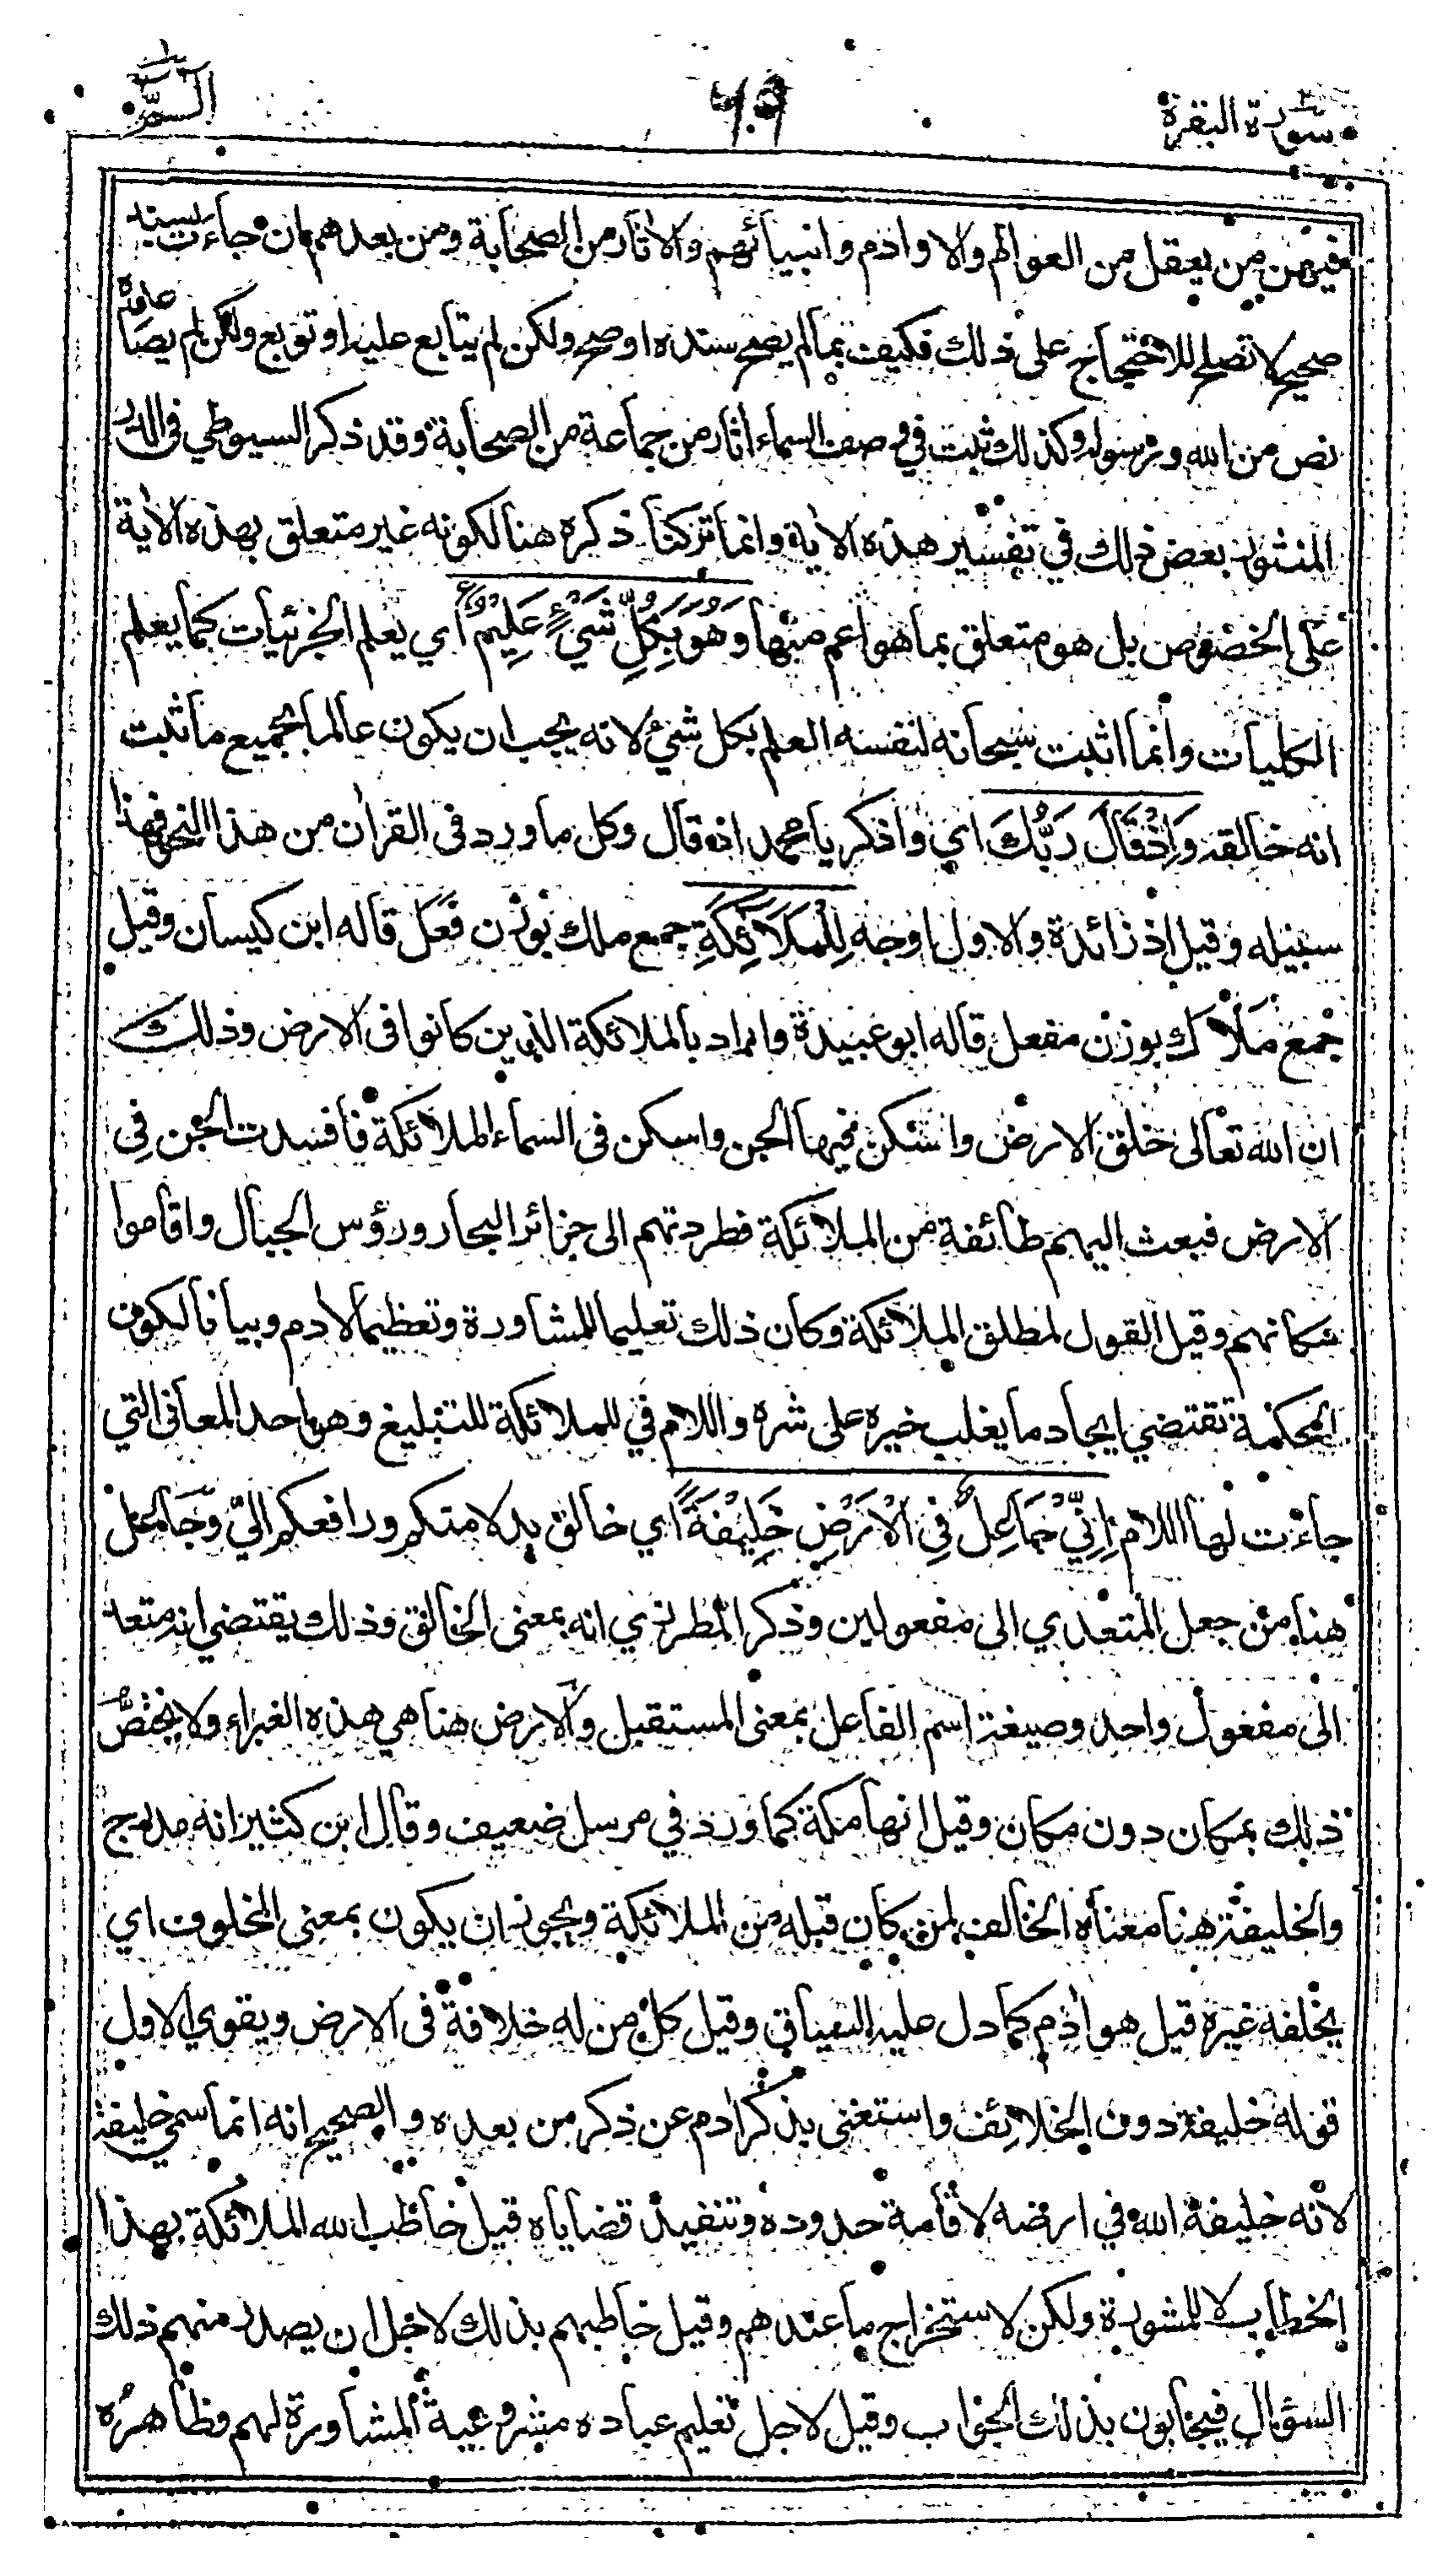 سورة البقرة
١٠٩
الٓمّٓ
فيهن من يعقل من العوالم والا وادم وانبيائهم والاثار من الصحابة ومن بعدهم وان جاءت بسند
صحيح لا تصلح للاحتجاج على ذلك فكيف بما لم يصح سنده او صح ولكن لم يتابع عليه او توبع ولكن لم يصادمه
نص من الله ورسوله وكذلك ثبت في وصف السماء اثار من جماعة من الصحابة وقد ذكر السيوطي في الدر
المنثور بعض ذلك في تفسير هذه الاية وانما تركنا ذكره هنا لكونه غير متعلق بهذه الاية
على الخصوص بل هو متعلق بما هو اعم منها وَهُوَ بِكُلِّ شَيْءٍ عَلِيمٌ اي يعلم الجزئيات كما يعلم
الكليات وانما اثبت سبحانه لنفسه العلم بكل شئ لانه يجب ان يكون عالما بجميع ما ثبت
انه خالقه وَاِذْ قَالَ رَبُّكَ اي واذكر يا محمد اذ قال وكل ما ورد في القران من هذا النحو فهذا
سبيله وقيل اذ زائدة والاول اوجه لِلْمَلَائِكَةِ جمع ملك بوزن فَعَل قاله ابن كيسان وقيل
جمع مَلْأَك بوزن مفعل قاله ابو عبيدة والمراد بالملائكة الذين كانوا في الارض وذلك
ان الله تعالى خلق الارض واسكن فيها الجن واسكن في السماء الملائكة فافسدت الجن في
الارض فبعث اليهم طائفة من الملائكة فطردتهم الى جزائر البحار ورؤس الجبال واقاموا
مكانهم وقيل القول لمطلق الملائكة وكان ذلك تعليما للمشاورة وتعظيما لادم وبيانا لكون
الحكمة تقتضي ايجاد ما يغلب خيره على شره واللام في للملائكة للتبليغ وهو احد المعاني التي
جاءت لها اللام اِنِّي جَاعِلٌ فِي الْاَرْضِ خَلِيفَةً اي خالق بدلا منكم ورافعكم اليّ وجاعل
هنا من جعل المتعدي الى مفعولين وذكر المطرزي انه بمعنى الخالق وذلك يقتضي انه متعد
الى مفعول واحد وصيغة اسم الفاعل بمعنى المستقبل والارض هنا هي هذه الغبراء ولا يختصّ
ذلك بمكان دون مكان وقيل انها مكة كما ورد في مرسل ضعيف وقال ابن كثير انه مدرج
والخليفة هنا معناه الخالف لمن كان قبله من الملائكة ويجوز ان يكون بمعنى المخلوف اي
يخلفه غيره قيل هو ادم كما دل عليه السياق وقيل كل من له خلافة في الارض ويقوي الاول
قوله خليفة دون الخلائف واستغنى بذكر ادم عن ذكر من بعده والصحيح انه انما سمي خليفة
لانه خليفة الله في ارضه لاقامة حدوده وتنفيذ قضاياه قيل خاطب الله الملائكة بهذا
الخطاب لا للمشورة ولكن لاستخراج ما عندهم وقيل خاطبهم بذلك لاجل ان يصدر منهم ذلك
السؤال فيجابون بذلك الجواب وقيل لاجل تعليم عباده مشروعية المشاورة لهم وظاهره